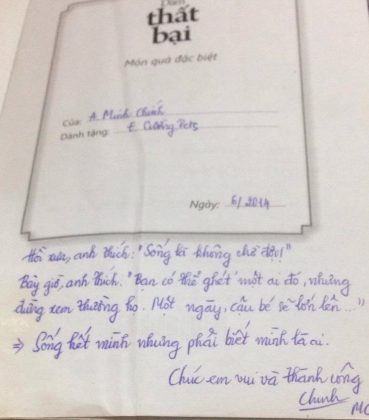 Dám
thất
bại
Món quà đặc biệt
Của: A. Minh Chánh
Dành tặng: E. Cường Pets
Ngày: 6/2014
Hồi xưa, anh thích: "Sống là không chờ đợi"
Bây giờ, anh thích: "Bạn có thể ghét một ai đó, nhưng
đừng xem thường họ. Một ngày, cậu bé sẽ lớn lên..."
⇒ Sống hết mình nhưng phải biết mình là ai.
Chúc em vui và thành công
Chánh MC